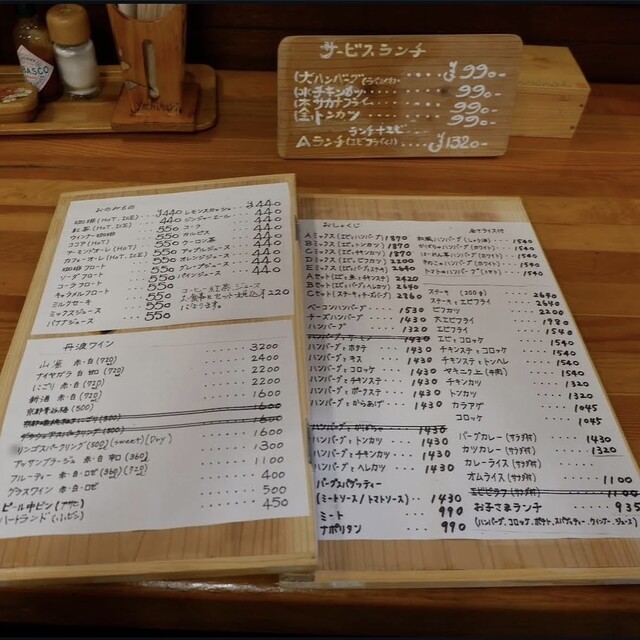 サービスランチ
(火)ハンバーグ ¥990-
(水)チキンカツ ¥990-
(木)サカナフライ ¥990-
(金)トンカツ ¥990-
ランチ+エビ
Aランチ(エビフライ) ¥1320-
おのみもの
珈琲(HOT.ICE) ¥440
紅茶(HOT.ICE) 440
ウィンナー珈琲 550
ココア(HOT) 550
アーモンドオーレ(HOT) 550
カフェ・オーレ(HOT.ICE) 550
珈琲フロート 550
ソーダフロート 550
コークフロート 550
キャラメルフロート 550
ミルクセーキ 550
ミックスジュース 550
バナナジュース 550
レモンスカッシュ ¥440
ジンジャーエール 440
コーク 440
カルピス 440
ウーロン茶 440
アップルジュース 440
オレンジジュース 440
グレープジュース 440
パインジュース 440
コーヒー 紅茶 ジュース
お食事とセット 220
になります。
丹波ワイン
山 赤・白(720) 3200
2400
にごり 赤・白(720) 2200
新酒 赤・白(720) 2200
1600
1600
スパークリング(500)(sweet)(Dry) 1600
赤・白 辛口(360) 1300
フルーティー 赤・白・ロゼ(360) 1100
グラスワイン 赤・白・ロゼ 400
ビール中ビン 500
ハートランド(小ビン) 450
おしょくじ
Aミックス(エビとハンバーグ) 1870
Bミックス(エビとトンカツ) 1870
Cミックス(エビとチキンカツ) 1870
Dミックス(エビとビフカツ) 2200
Eミックス 2640
Aセット 2420
Bセット(エビとハンバーグとヘレカツ) 2640
Cセット(ステーキとチーズバーグ) 2860
ベーコンハンバーグ 1530
チーズハンバーグ 1430
ハンバーグ 1320
ハンバーグとチキン 1430
ハンバーグとホタテ 1430
ハンバーグとキス 1430
ハンバーグとコロッケ 1430
ハンバーグとチキンステーキ 1430
ハンバーグとポークステーキ 1430
ハンバーグとからあげ 1430
ハンバーグと 1430
ハンバーグとトンカツ 1430
ハンバーグとチキンカツ 1430
ハンバーグとヘレカツ 1430
バーグスパゲッティー
(ミートソース/トマトソース) 1430
ミート 990
ナポリタン 990
全てライス付
和風ハンバーグ(しょうゆ) 1540
かりばりゃハンバーグ(ホワイト) 1540
ハンバーグ(ホワイト) 1540
きのこのハンバーグ(ホワイト) 1540
トマトのハンバーグ 1540
ステーキ (200g) 2640
ステーキとエビフライ 2640
ビフカツ 2200
大エビフライ 1980
エビフライ 1540
エビとコロッケ 1540
チキンステとコロッケ 1540
チキンステとトンヘレ 1540
ヤキニク(牛肉) 1540
チキンカツ 1320
トンカツ 1320
カラアゲ 1045
コロッケ 1045
バーグカレー(サラダ付) 1430
カツカレー(サラダ付) 1320
カレーライス(サラダ付)
オムライス(サラダ付) 1100
エビピラフ(サラダ付) 1100
お子さまランチ 935
(ハンバーグ、コロッケ、ポテト、スパゲッティー、ウィンナー、ジュース)